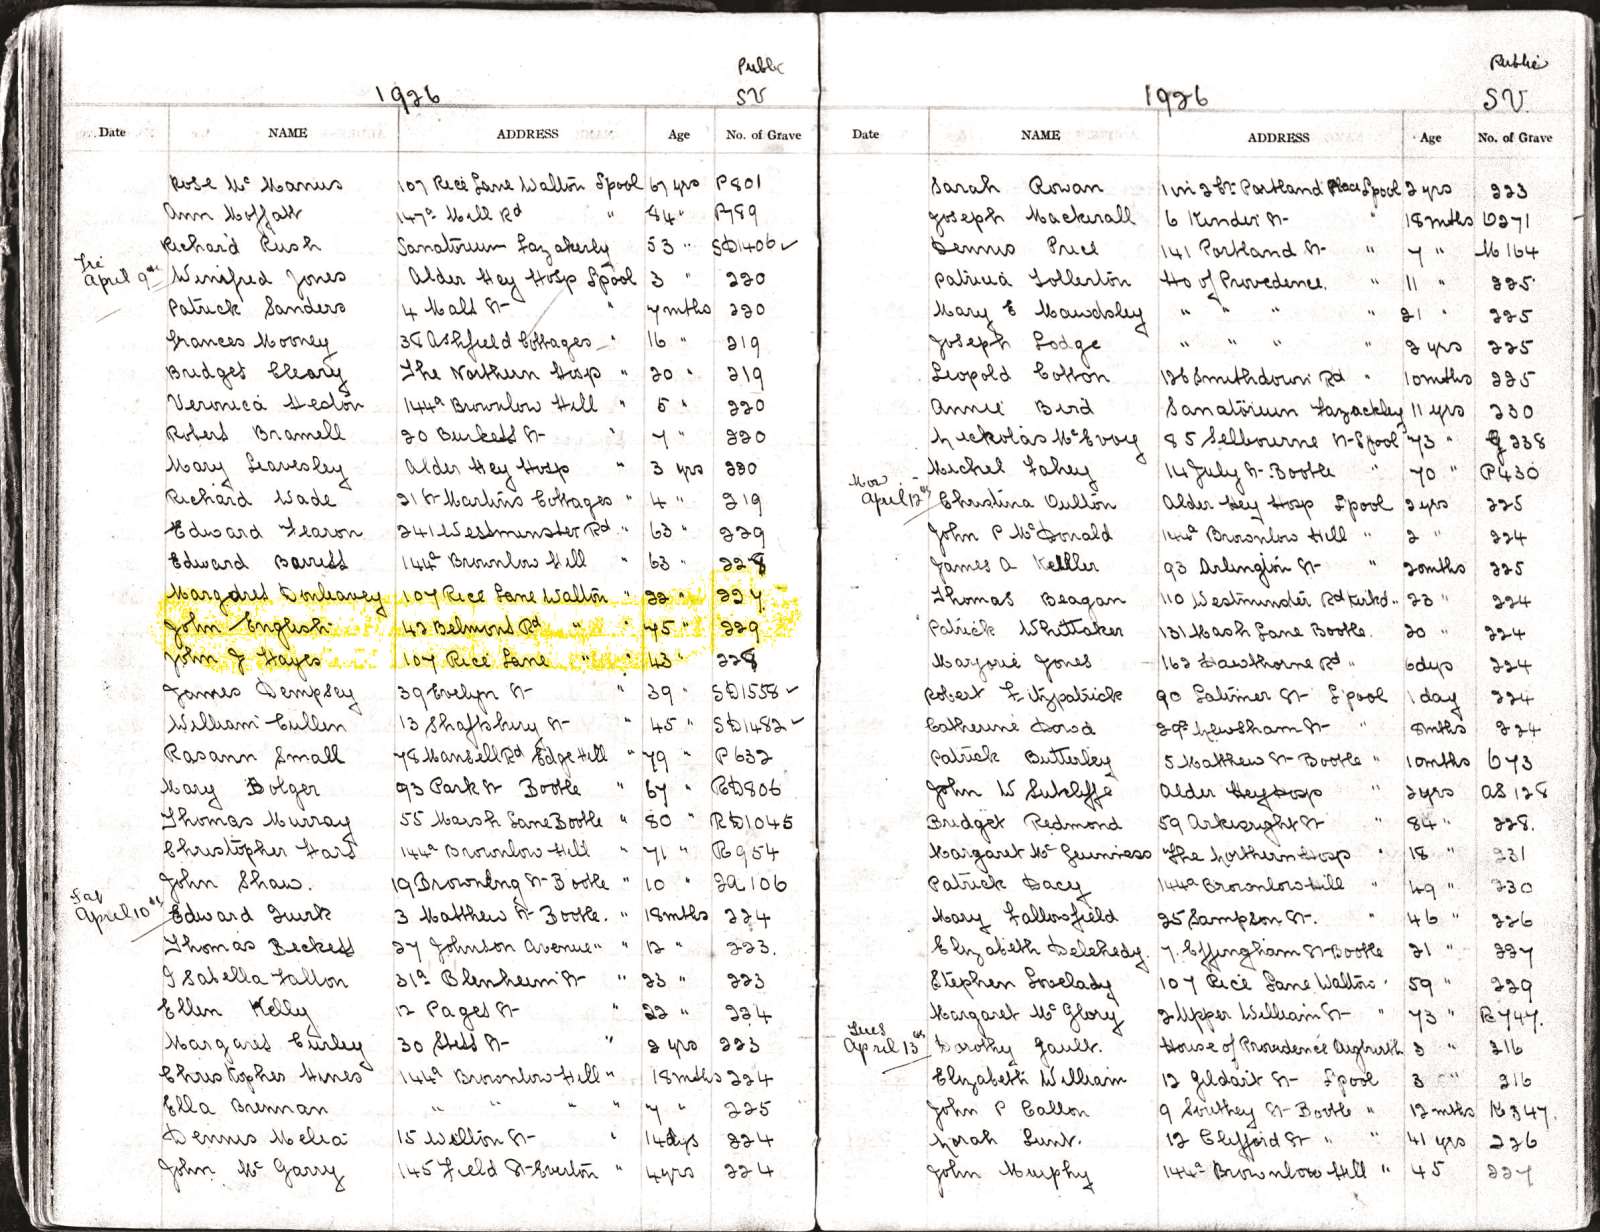 Public
1926 SV
Date NAME ADDRESS Age No. of Grave
Rose Mc Manus 107 Rice Lane Walton Lpool 67 yrs P801
Ann Moffatt 147a Mill Rd " 84 " P789
Richard Rush Sanatorium Fazakerly 53 " SD1406 ✓
Fri April 9th Winifred Jones Alder Hey Hosp Lpool 3 " 220
Patrick Sanders 4 Mald St " 7 mths 220
Frances Mooney 38 Ashfield Cottages " 16 " 219
Bridget Cleary The Northern Hosp " 20 " 219
Veronica Heaton 144a Brownlow Hill " 5 " 220
Robert Bramell 20 Burkett St " 7 " 220
Mary Leavesley Alder Hey Hosp " 3 yrs 220
Richard Wade 21 St Martins Cottages " 4 " 219
Edward Fearon 241 Westminster Rd " 63 " 229
Edward Barrett 144a Brownlow Hill " 63 " 228
Margaret Donleavey 107 Rice Lane Walton " 22 " 227
John English 42 Belmont Rd " " 75 " 229
John J Hayes 107 Rice Lane " " 43 " 228
James Dempsey 39 Evelyn St " 39 " SD1558 ✓
William Cullen 13 Shaftsbury St " 45 " SD1482 ✓
Rasann Small 78 Mansell Rd Edge Hill " 79 " P632
Mary Bolger 93 Park St Bootle " 67 " RD806
Thomas Murray 55 Marsh Lane Bootle " 80 " RD1045
Christopher Hard 144a Brownlow Hill " 71 " R954
John Shaw. 19 Browning St Bootle " 10 " 2A106
Sat April 10th Edward Turk 3 Matthew St Bootle. " 18 mths 224
Thomas Beckett 27 Johnson Avenue " " 12 " 223.
Isabella Fallon 31a Blenheim St " 23 " 223
Ellen Kelly 12 Pages St " 22 " 224
Margaret Curley 30 St " 2 yrs 223
Christopher Hines 144a Brownlow Hill " 18 mths 224
Ella Brennan " " " " 7 " 225
Dennis Melia 15 Welton St " 14 dys 224
John Mc Garry 145 Field St Everton " 4 yrs 224
Public
1926 SV.
Date NAME ADDRESS Age No. of Grave
Sarah Rowan 1 in 2 Ct Portland Place Lpool 2 yrs 223
Joseph Mackerall 6 Kinder St " 18 mths 271
Dennis Price 141 Portland St " 7 " M164
Patricia Tollerton Ho of Provedence. " 11 " 225
Mary E Mawdsley " " " " 21 " 225
Joseph Lodge " " " " 2 yrs 225
Leopold Cotton 126 Smithdown Rd " 10 mths 225
Annie Bird Sanatorium Fazackley 11 yrs 230
Nickolas Mc Evoy 85 Selbourne St Lpool 73 " 238
Michel Fahey 14 July St Bootle " 70 " P430
Mon April 12th Christina Oulton Alder Hey Hosp Lpool 2 yrs 225
John P Mc Donald 144a Brownlow Hill " 2 " 224
James A Keller 93 Arlington St " 20 mths 225
Thomas Beagan 110 Westminster Rd Kirkd " 23 " 224
Patrick Whittaker 131 Mash Lane Bootle. 20 " 224
Marjorie Jones 162 Hawthorne Rd " 6 dys 224
Robert Fitzpatrick 90 Latimer St Lpool 1 day 224
Catherine Dowd 29a Newsham St " 8 mths 224
Patrick Butterley 5 Matthew St Bootle " 10 mths 73
John W Sutcliffe Alder Hey Hosp " 2 yrs AS 128
Bridget Redmond 59 Arkwright St " 84 " 228.
Margaret Mc Guinness The Northern Hosp " 18 " 231
Patrick Dacy 144a Brownlow Hill " 49 " 230
Mary Fallowsfield 25 Sampson St. " 46 " 226
Elizabeth Delehedy. 7. Effingham St Bootle 21 " 227
Stephen Lovelady 107 Rice Lane Walton " 59 " 229
Margaret Mc Glory 2 Upper William St " 73 " R747.
Tues April 13th Dorothy Gault. House of Providence Aigburth 3 " 216
Elizabeth William 12 Gildart St Lpool 3 " 216
John P Callon 9 Southey St Bootle " 12 mths 347.
Norah Lunt. 12 Clifford St " " 41 yrs 226
John Murphy 144a Brownlow Hill " 45 227